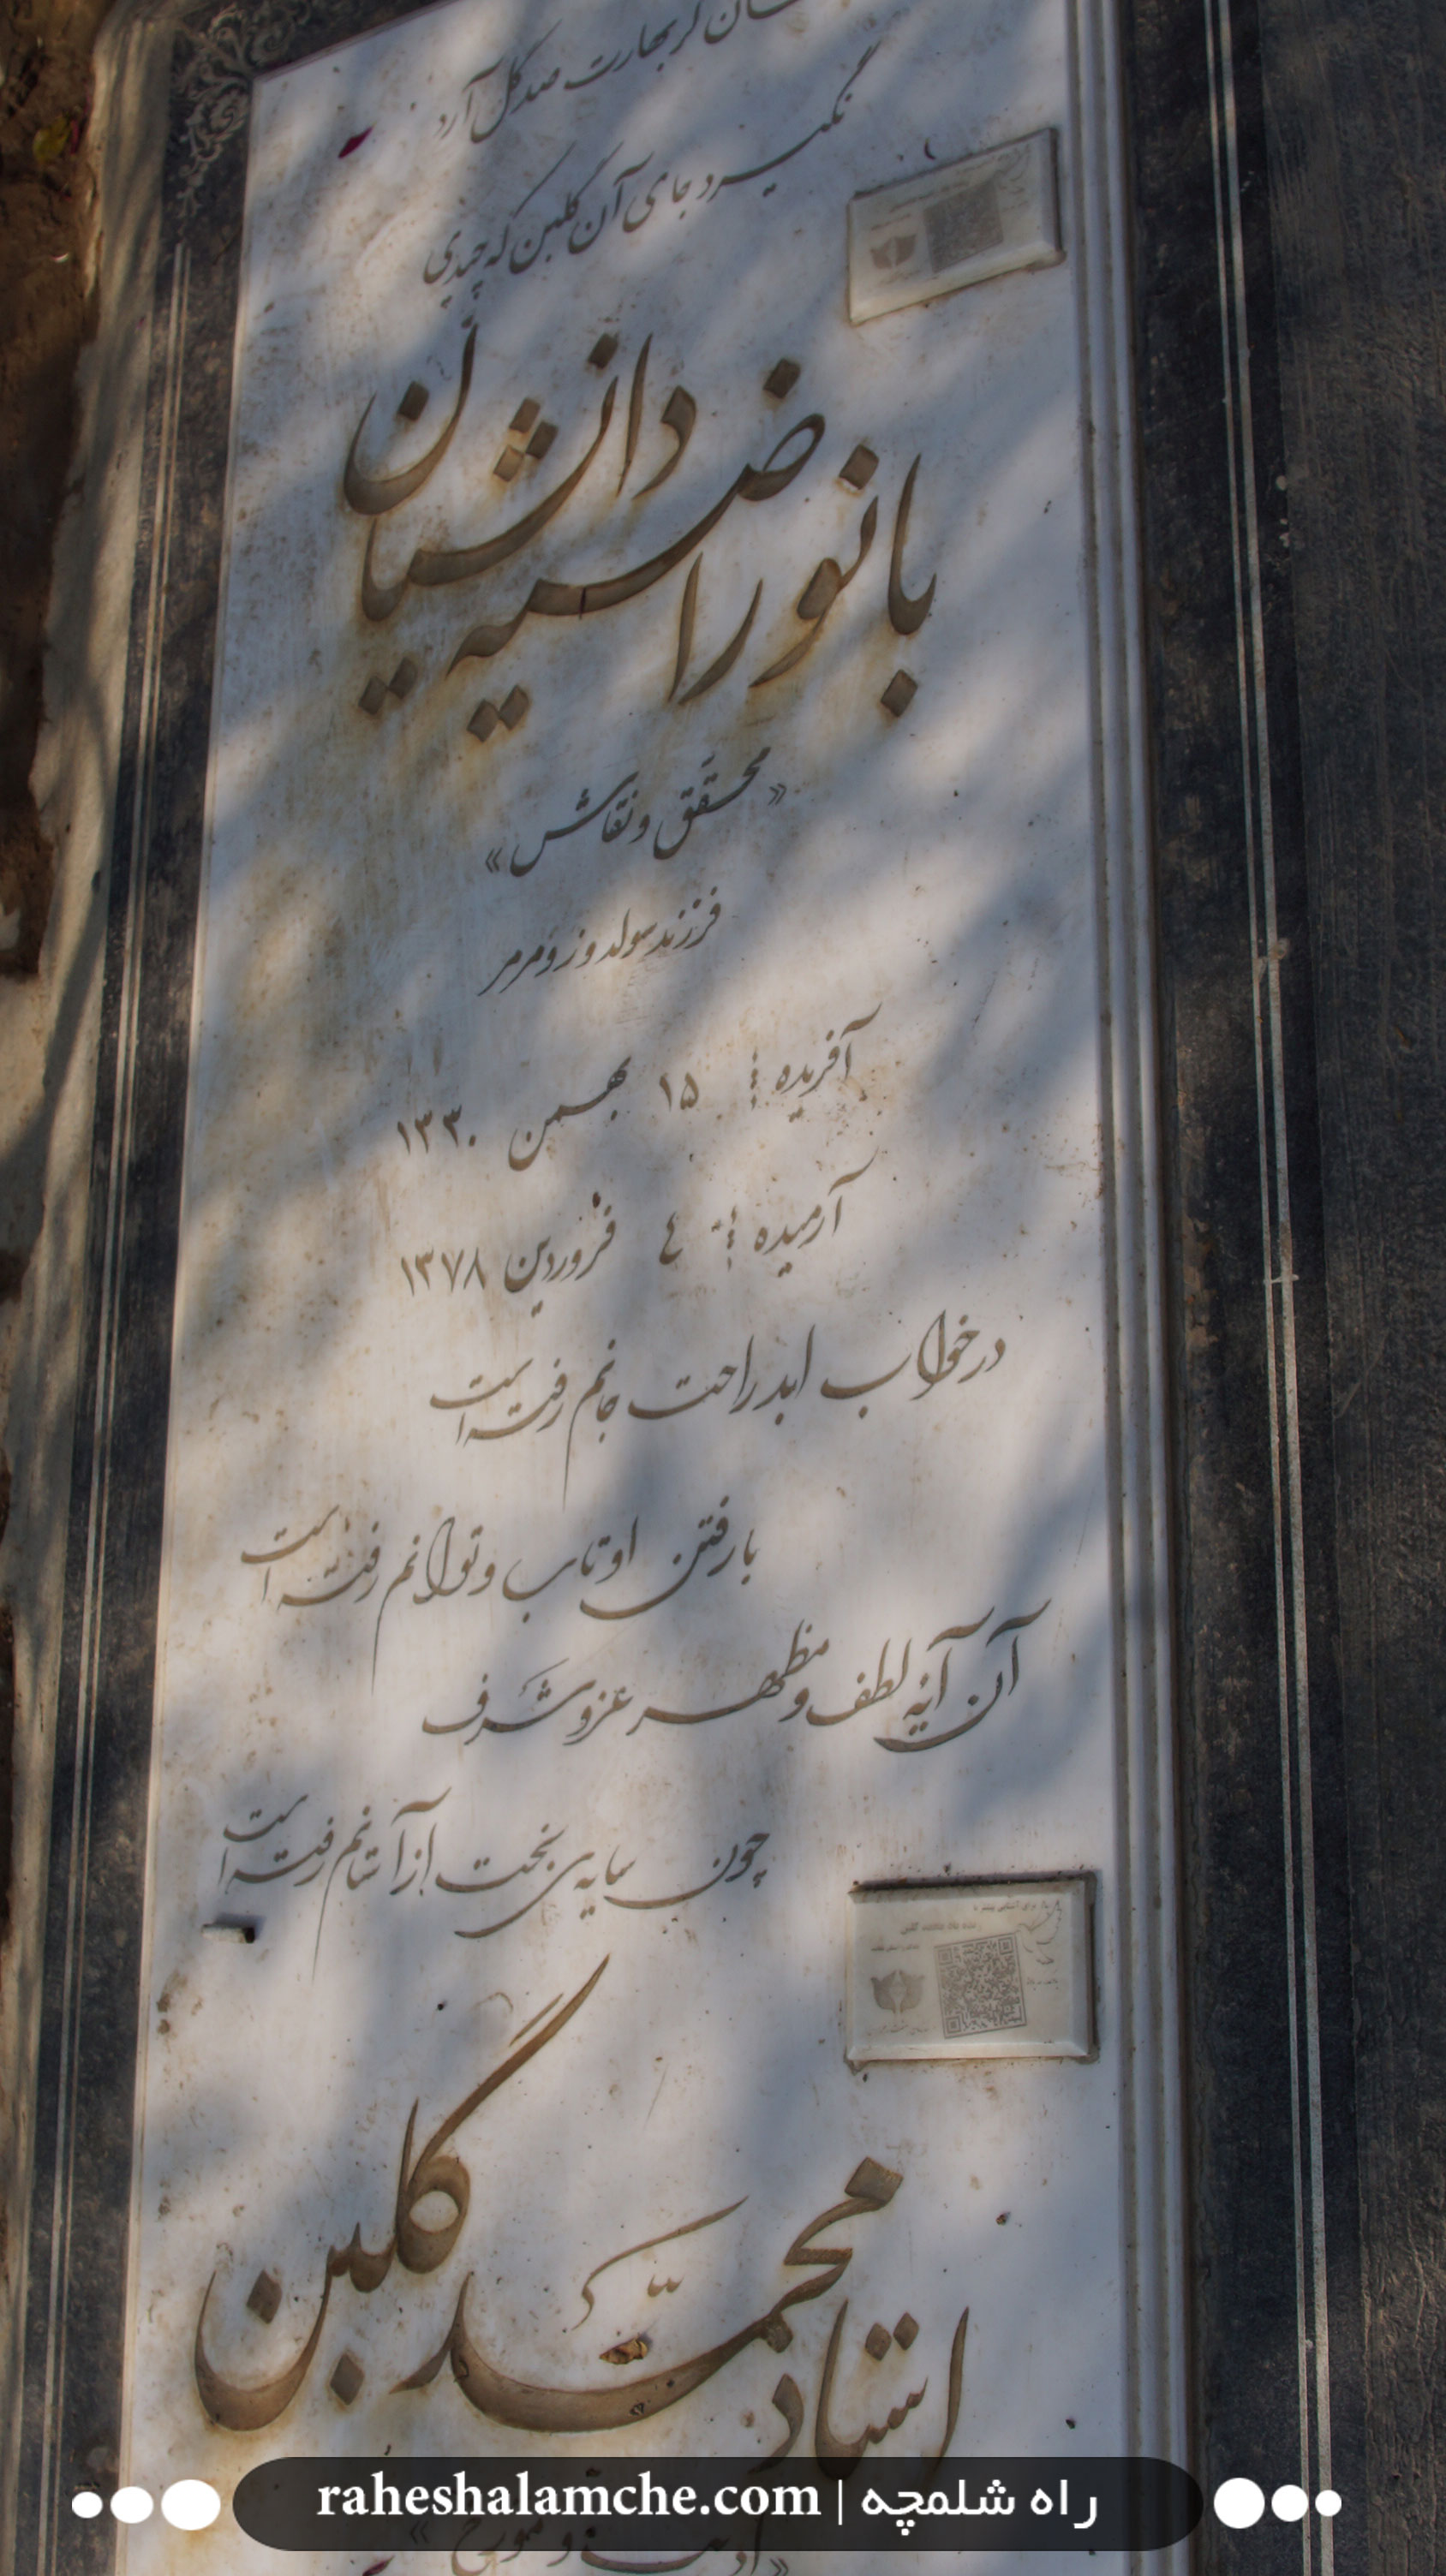 گر بهارت صد گل آرد
نگیرد جای آن گلبن که چیدی
بانو راضیه دانشیان
«محقق و نقاش»
فرزند سولدوز و مرمر
آفریده : ۱۵ بهمن ۱۳۳۰
آرمیده : ٤ فروردین ۱۳۷۸
در خواب ابد راحت جانم رفته است
با رفتن او تاب و توانم رفته است
آن آینه لطف و مظهر عز و شرف
چون سایه‌ی بخت از آستانم رفته است
استاد محمد گلبن
راه شلمچه | raheshalamche.com